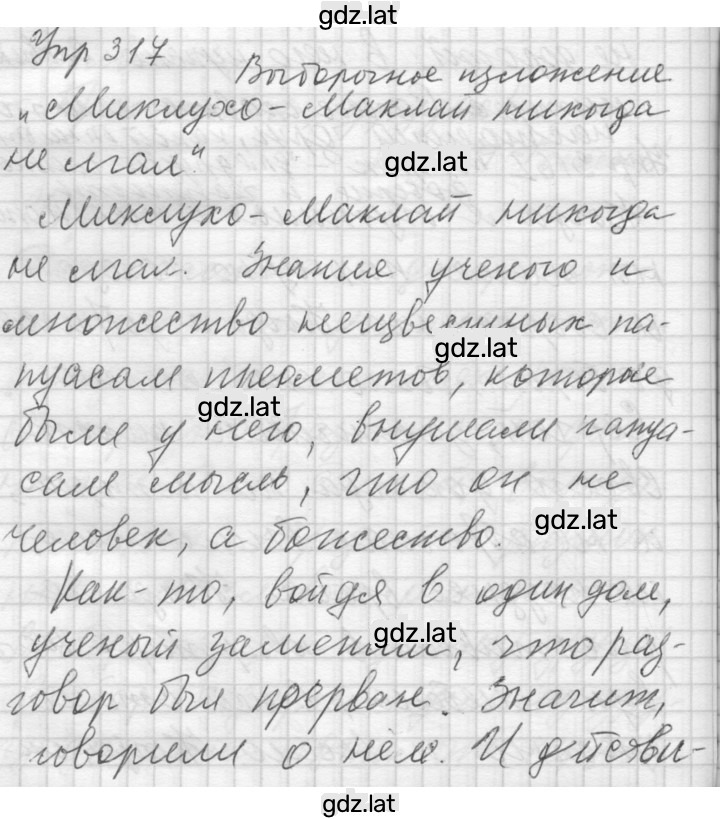 gdz.lat
Упр 317
Выборочное изложение
„Миклухо-Маклай никогда
не лгал"
gdz.lat
Миклухо-Маклай никогда
не лгал. Знания ученого и
множество неизвестных па-
gdz.lat
пуасам предметов, которые
gdz.lat
были у него, внушали папуа-
сам мысль, что он не
gdz.lat
человек, а божество.
Как-то, войдя в один дом,
gdz.lat
ученый заметил, что раз-
говор был прерван. Значит,
говорили о нём. И действи-
gdz.lat